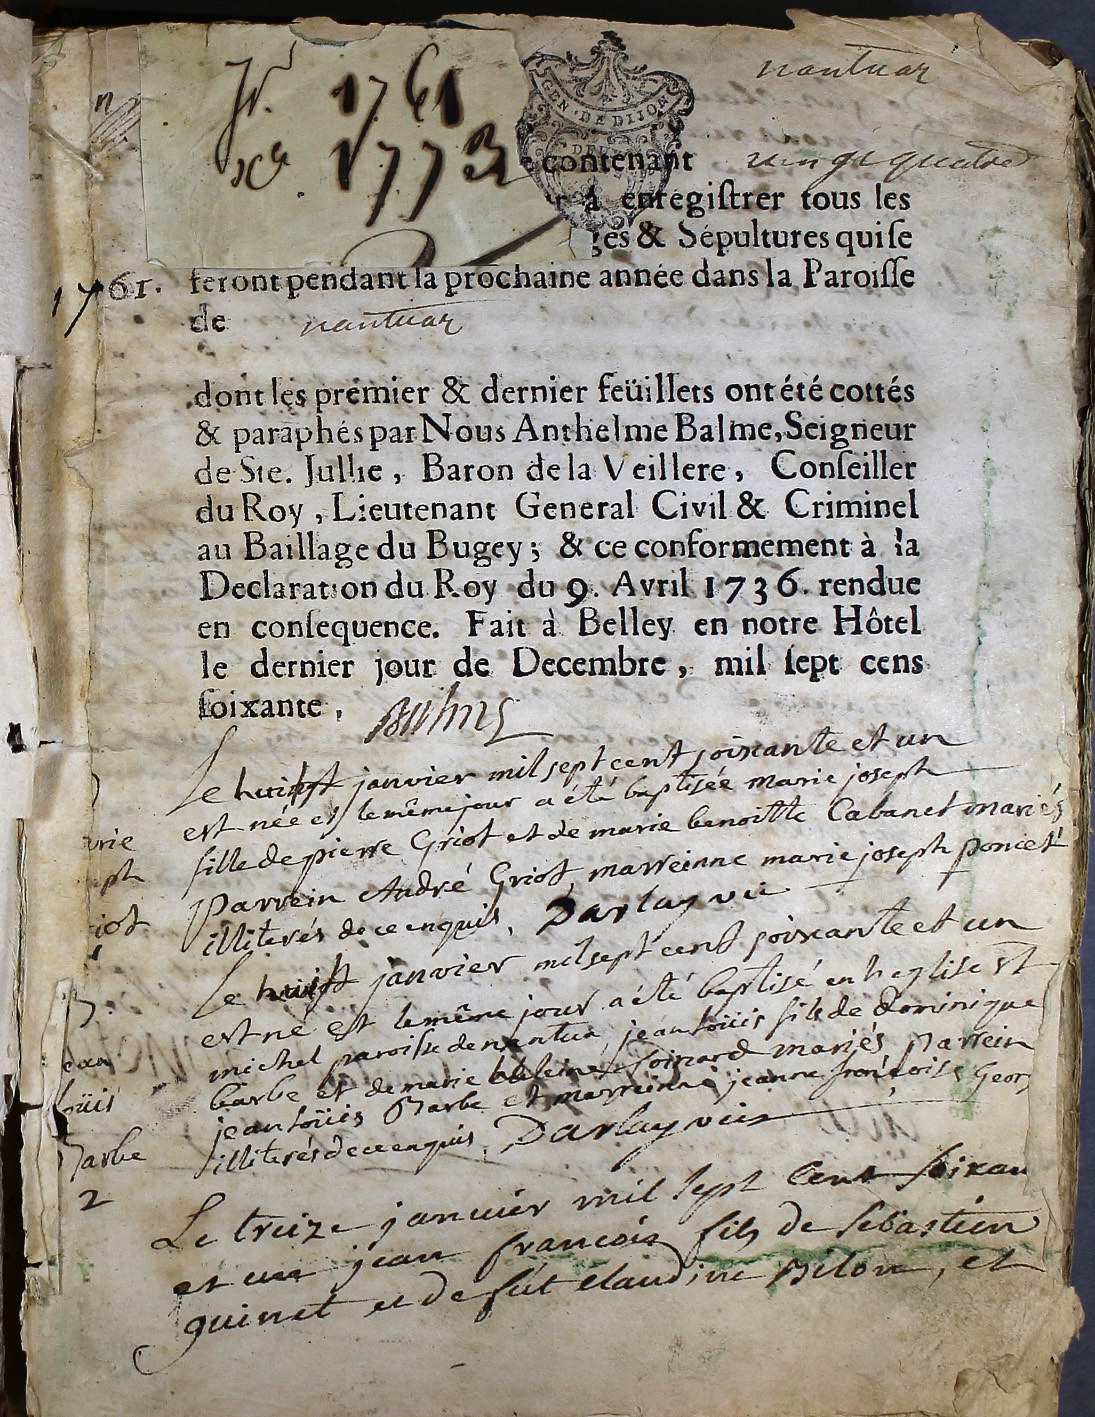 nantuar
1761
1773
GEN · DE DIJON
contenant vingt quatre
à enregiſtrer tous les
ges & Sépultures qui ſe
1761. feront pendant la prochaine année dans la Paroiſſe
de nantuar
dont les premier & dernier feüillets ont été cottés
& paraphés par Nous Anthelme Balme, Seigneur
de Ste. Jullie, Baron de la Veillere, Conſeiller
du Roy, Lieutenant General Civil & Criminel
au Baillage du Bugey; & ce conformement à la
Declaration du Roy du 9. Avril 1736. rendue
en conſequence. Fait à Belley en notre Hôtel
le dernier jour de Decembre, mil ſept cens
ſoixante,
Balme
Le huit janvier mil sept cent soixante et un
est née et le même jour a été baptisée marie joseph
fille de pierre Griot et de marie benoitte Cabanet mariés
parrein André Griot, marreinne marie joseph poncet
illiterés de ce enquis, Darlay vic
Le huit janvier mil sept cent soixante et un
est né et le même jour a été baptisé en l'eglise st
michel paroisse de nantua, jean loüis fils de dominique
barbe et de marie heleine soinard mariés parrein
jean loüis Barbe et marreinne jeanne françoise Geor
illiterés de ce enquis. Darlay vic
Barbe
2
Le treize janvier mil sept cent soixan
et un jean françois fils de sebastien
guinet et de fut claudine Bilon, et